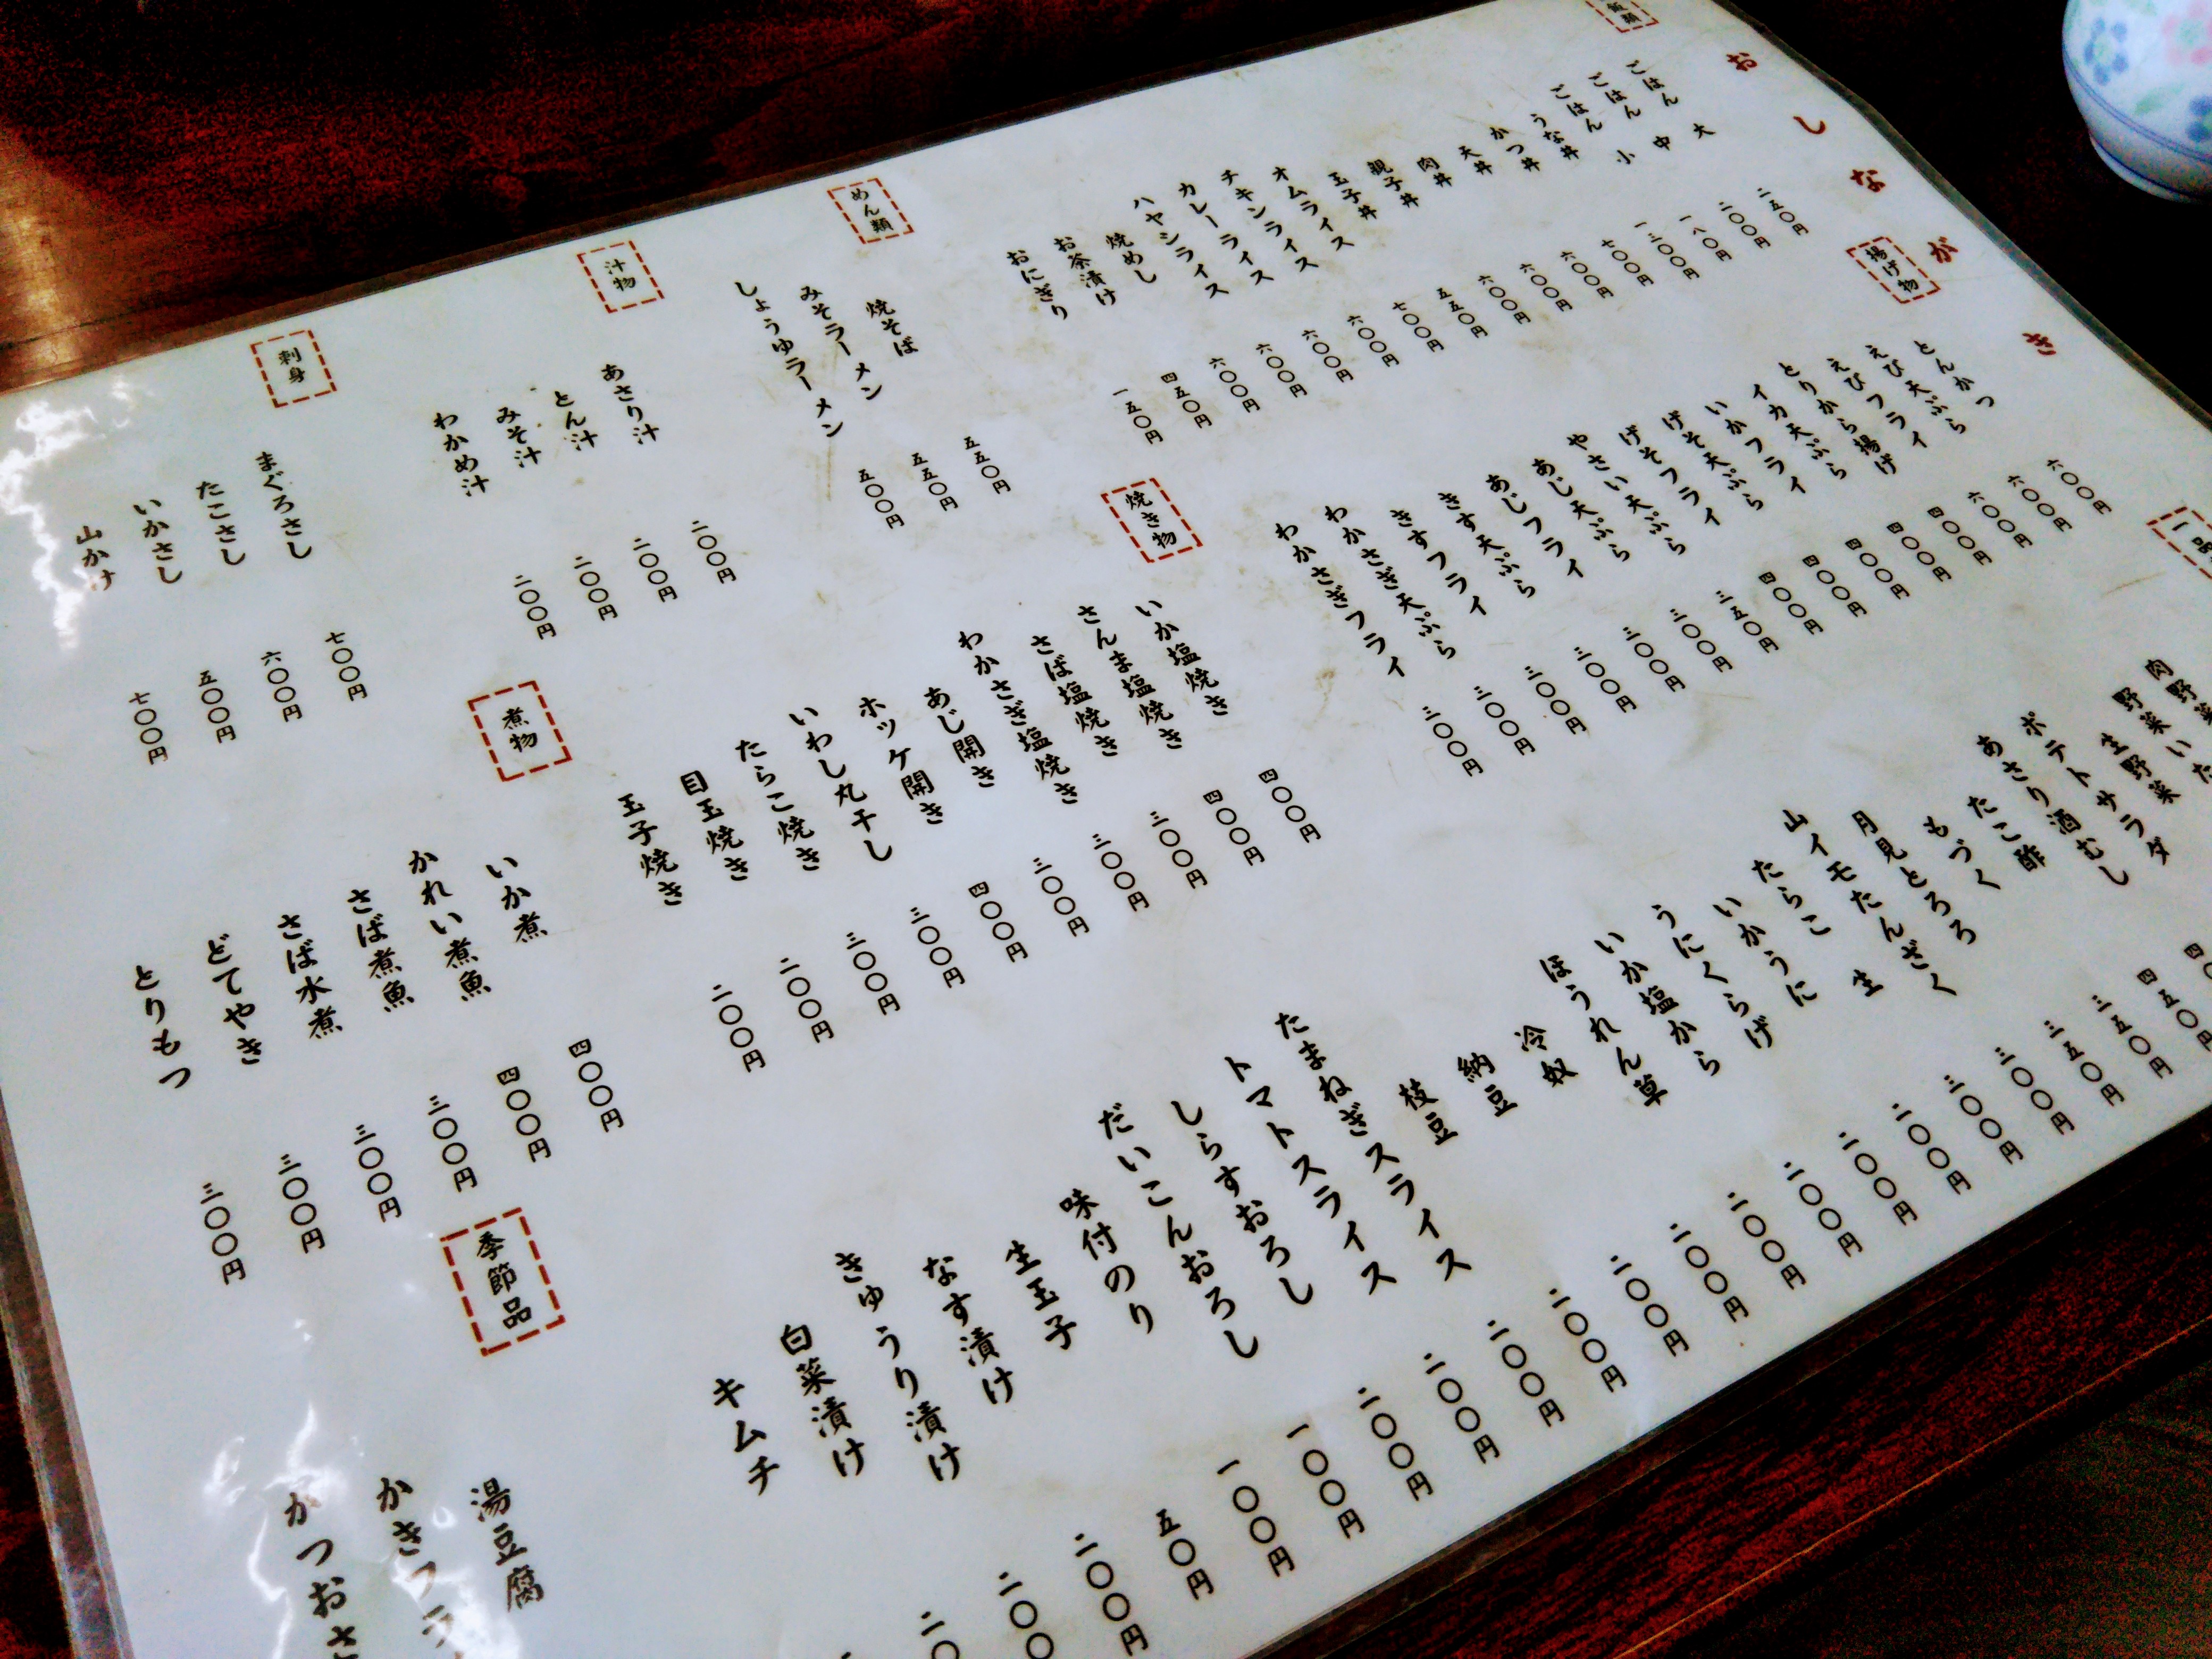 おしながき
飯類
ごはん 大 二五〇円
ごはん 中 二〇〇円
ごはん 小 一八〇円
うな丼 一三〇〇円
かつ丼 七〇〇円
天丼 六〇〇円
肉丼 六〇〇円
親子丼 六〇〇円
玉子丼 五五〇円
オムライス 七〇〇円
チキンライス 六〇〇円
カレーライス 六〇〇円
ハヤシライス 六〇〇円
焼めし 六〇〇円
お茶漬け 四五〇円
おにぎり 一五〇円
めん類
焼そば 五五〇円
みそラーメン 五五〇円
しょうゆラーメン 五〇〇円
汁物
あさり汁 二〇〇円
とん汁 二〇〇円
みそ汁 二〇〇円
わかめ汁 二〇〇円
刺身
まぐろさし 七〇〇円
たこさし 六〇〇円
いかさし 五〇〇円
山かけ 七〇〇円
揚げ物
とんかつ 六〇〇円
えび天ぷら 六〇〇円
えびフライ 六〇〇円
とりから揚げ 四〇〇円
イカ天ぷら 四〇〇円
いかフライ 四〇〇円
げそ天ぷら 四〇〇円
げそフライ 四〇〇円
やさい天ぷら 三五〇円
あじ天ぷら 三〇〇円
あじフライ 三〇〇円
きす天ぷら 三〇〇円
きすフライ 三〇〇円
わかさぎ天ぷら 三〇〇円
わかさぎフライ 三〇〇円
焼き物
いか塩焼き 四〇〇円
さんま塩焼き 四〇〇円
さば塩焼き 三〇〇円
わかさぎ塩焼き 三〇〇円
あじ開き 三〇〇円
ホッケ開き 四〇〇円
いわし丸干し 三〇〇円
たらこ焼き 三〇〇円
目玉焼き 二〇〇円
玉子焼き 二〇〇円
煮物
いか煮 四〇〇円
かれい煮魚 四〇〇円
さば煮魚 三〇〇円
さば水煮 三〇〇円
どてやき 三〇〇円
とりもつ 三〇〇円
一品
肉野菜
野菜いた
生野菜
ポテトサラダ
あさり酒むし
たこ酢 四五〇円
もづく 三五〇円
月見とろろ 三五〇円
山イモたんざく 三〇〇円
たらこ 生 三〇〇円
いかうに 二〇〇円
うにくらげ 二〇〇円
いか塩から 二〇〇円
ほうれん草 二〇〇円
冷奴 二〇〇円
納豆 二〇〇円
枝豆 二〇〇円
たまねぎスライス 二〇〇円
トマトスライス 二〇〇円
しらすおろし 二〇〇円
だいこんおろし 一〇〇円
味付のり 一〇〇円
生玉子 五〇円
なす漬け 二〇〇円
きゅうり漬け 二〇〇
白菜漬け 二〇
キムチ
季節品
湯豆腐
かきフラ
かつおさ